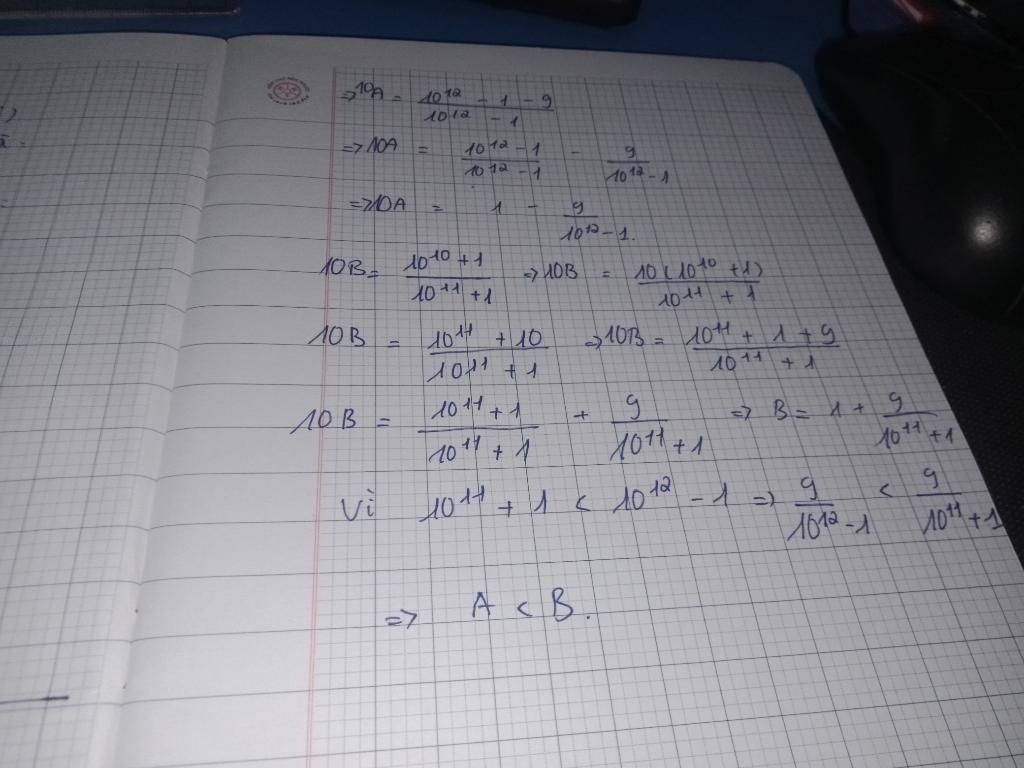 => 10A = \frac{10^{12} - 1 - 9}{10^{12} - 1}
=> 10A = \frac{10^{12} - 1}{10^{12} - 1} - \frac{9}{10^{12} - 1}
=> 10A = 1 - \frac{9}{10^{12} - 1}.
10B = \frac{10^{10} + 1}{10^{11} + 1} => 10B = \frac{10(10^{10} + 1)}{10^{11} + 1}
10B = \frac{10^{11} + 10}{10^{11} + 1} => 10B = \frac{10^{11} + 1 + 9}{10^{11} + 1}
10B = \frac{10^{11} + 1}{10^{11} + 1} + \frac{9}{10^{11} + 1} => B = 1 + \frac{9}{10^{11} + 1}
Vì 10^{11} + 1 < 10^{12} - 1 => \frac{9}{10^{12} - 1} < \frac{9}{10^{11} + 1}
=> A < B.